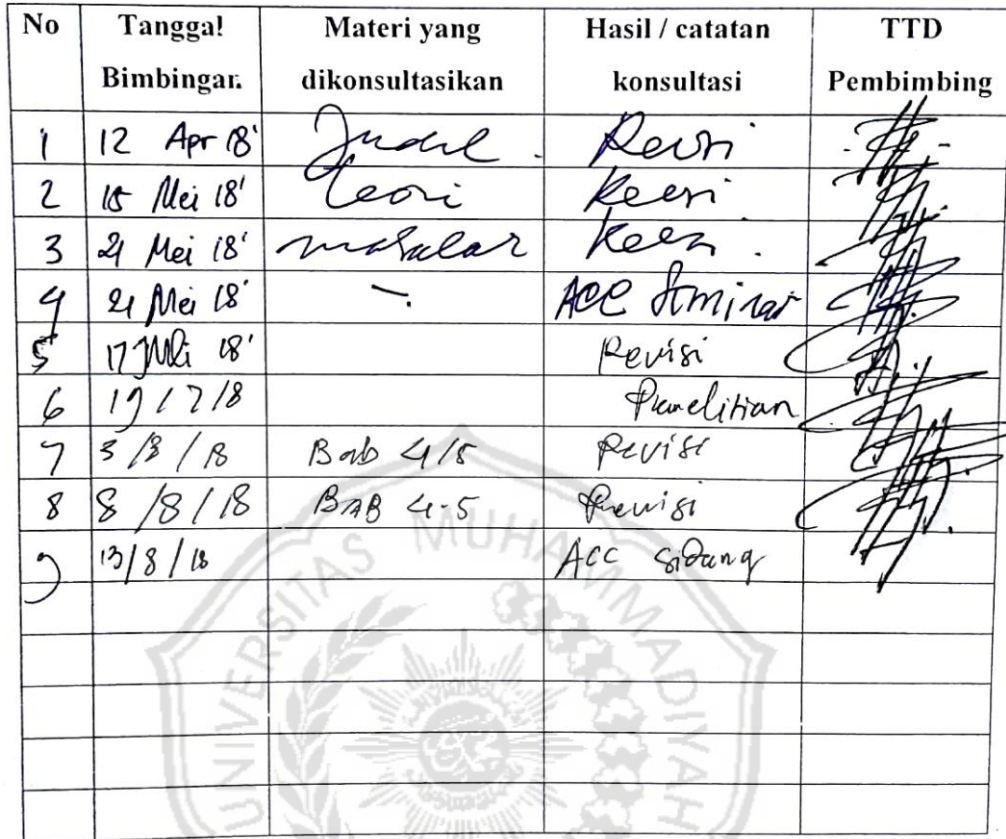 No Tanggal Bimbingan Materi yang dikonsultasikan Hasil / catatan konsultasi TTD Pembimbing
1 12 Apr 18' Judul . Revisi
2 15 Mei 18' Teori Revisi
3 21 Mei 18' masalah Revisi .
4 21 Mei 18' -. ACC Seminar
5 17 Juli 18' Revisi
6 19/7/18 Penelitian
7 3/8/18 Bab 4/5 Revisi
8 8/8/18 BAB 4-5 Revisi
9 13/8/18 ACC Sidang
UNIVERSITAS MUHAMMADIYAH